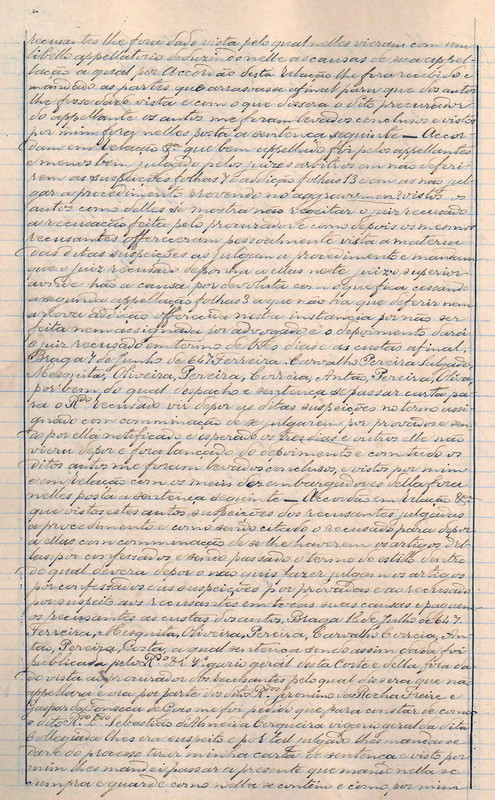 recusantes lhe fora dado vista pelo qual nelles vieram com um
libello appellatorio deduzindo nelle as causas de sua appel-
lação a qual por Accordão desta Relação lhe fora recebido e
mandado as partes que arrasoassem afinal para que dos autos
lhe fosse dado vista e com o que dissera o dito procurador
do appellante os autos me foram levados conclusos e vistos
por mim foi nelles posta a sentença seguinte — Accor-
dam em Relação &ra que bem appellado foi pelos appellantes
e menos bem julgado pelos juizes arbitros em não deferi-
rem as suspeições folhas 7 e addição folhas 13 e em as não jul-
gar a procedimento provendo no aggravo vistos os
autos como delles se mostra não o juiz recusado
a recusação feita pelo procurador e como depois os mesmos
recusantes offereceram pessoalmente vista a materia
das ditas suspeições as julgam a procedimento e mandam
que o juiz recusado deponha a ellas neste juizo superior
aonde a causa por devoluta com o que fica cessando
a segunda appellação folhas 3 a que não ha que deferir nem
a nova addição offerecida nesta instancia por não ser
feita nem assignada por advogado e o depoimento dará
o juiz recusado em termo de tres dias e as custas afinal,
Braga 7 de Junho de 647. Ferreira. Carvalho Pereira Salgado,
Mesquita, Oliveira, Pereira, Correia, Antão, Pereira, Oliva,
por bem do qual despacho e sentença se passar carta pa-
ra o Rdo recusado vir depor as ditas suspeições no termo assi-
gnado com comminação de se julgarem por provadas e sen-
do por ella notificado e esperado os tres dias e outros elle não
viera depor e fora lançado do depoimento e com tudo os
ditos autos me foram levados conclusos, e vistos por mim
e em relação com os meus dezembargadores della fora
nelles posta a sentença seguinte — Accordão em Relação &ra
que vistos estes autos suspeições dos recusantes julgadas
a procedimento e como sendo citado o recusado para depor
a ellas com comminação de se lhe haverem os artigos del-
las por confessados e sendo passado o termo do estillo dentro
do qual devera depor o não quis fazer julgam os artigos
por confessados e as suspeições por provadas e ao recusado
por suspeito aos recusantes em todas suas causas e paguem
os recusantes as custas dos autos, Braga 18 de Julho de 647.
Ferreira, Mesquita, Oliveira, Pereira, Carvalho Correia, An-
tão, Pereira, Costa, a qual sentença sendo assim dada foi
publicada pelo Rdo Dr Vigario geral desta Corte e della fora da-
do vista ao procurador dos recusantes pelo qual dissera que não
appellara e ora por parte dos ditos Rdos Jeronimo da Rocha Freire e
Gaspar da Fonseca de Caes me foi pedido que para constar de como
o dito Rdo Dr Sebastião d'Almeira Cerqueira vigario geral da dita
Collegiada lhes era suspeito e por tal julgado lhes mandasse
dar do processo tirar minha carta de sentença e visto por
mim lhes mandei passar a presente que mando nella se
cumpra e guarde como nella se contem e como por mim